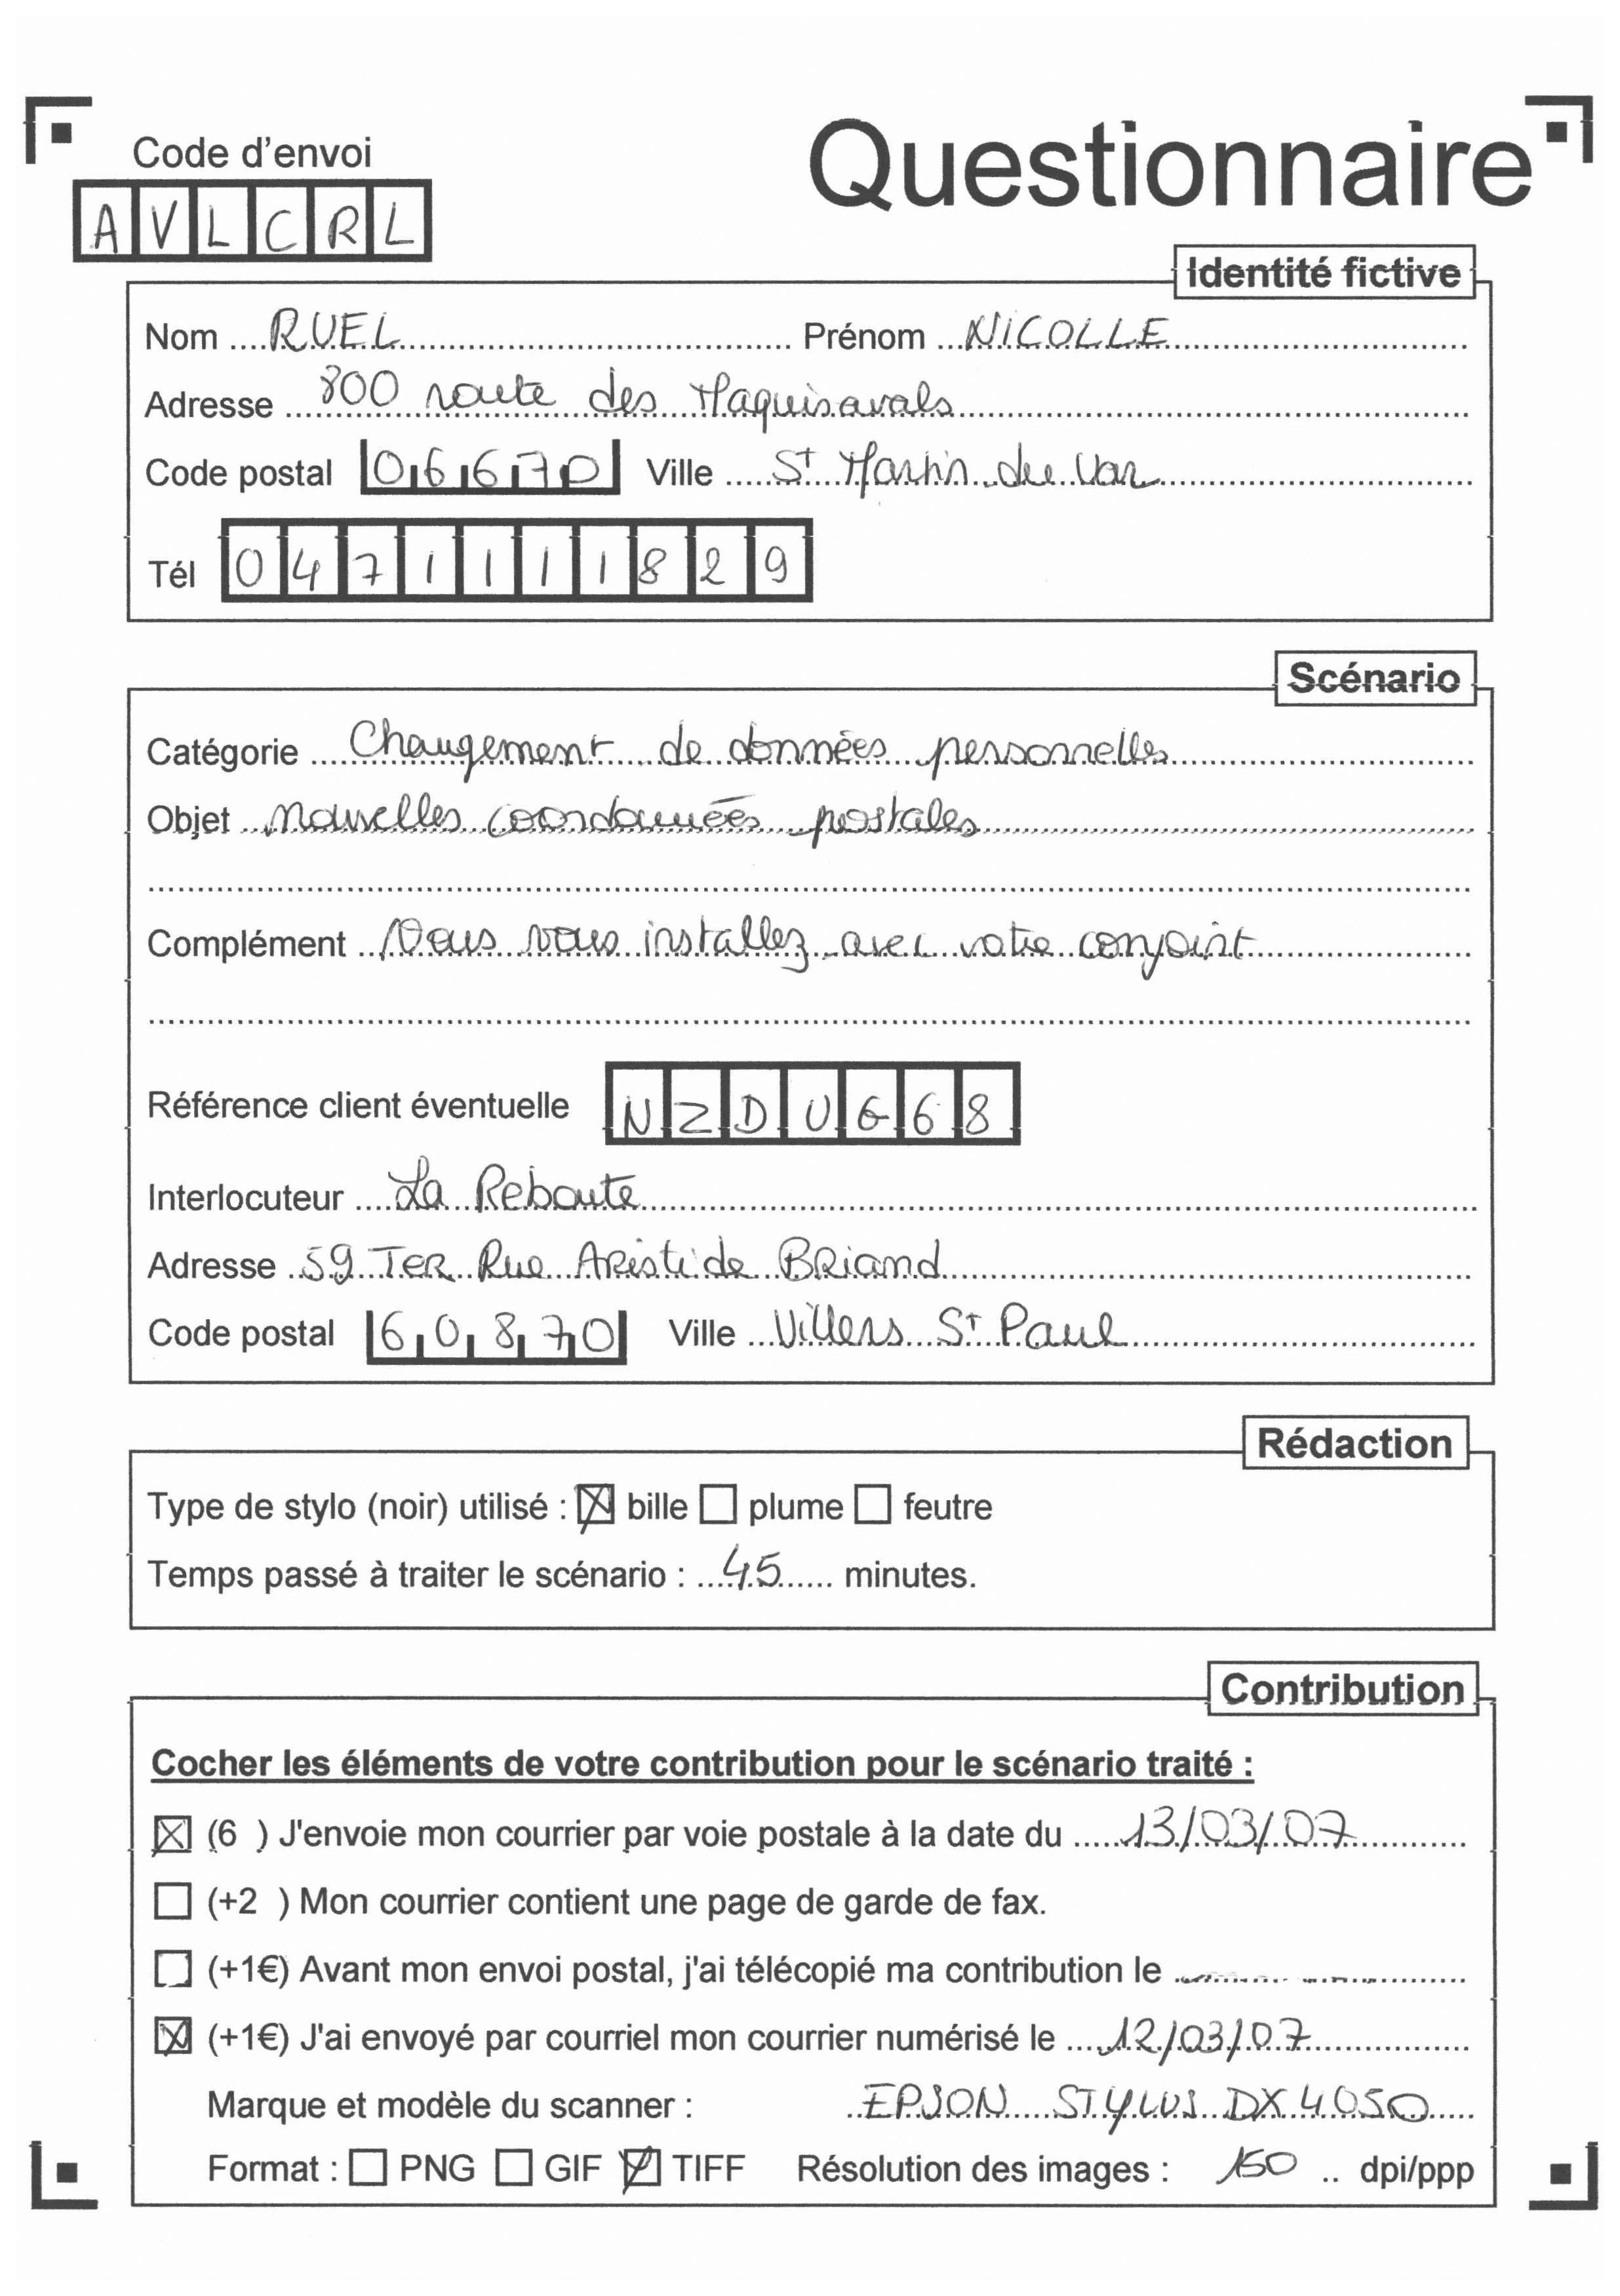 Code d'envoi
Questionnaire
A V L C R L
Identité fictive
Nom RUEL Prénom NICOLLE
Adresse 800 route des Maquisavals
Code postal 06670 Ville St Martin du Var
Tél 0471111829
Scénario
Catégorie Changement de données personnelles
Objet Nouvelles coordonnées postales
Complément Vous vous installez avec votre conjoint
Référence client éventuelle NZDUG68
Interlocuteur La Reboute
Adresse 59 TER Rue Aristide BRiand
Code postal 60870 Ville Villers St Paul
Rédaction
Type de stylo (noir) utilisé : bille plume feutre
Temps passé à traiter le scénario : 45 minutes.
Contribution
Cocher les éléments de votre contribution pour le scénario traité :
(6 ) J'envoie mon courrier par voie postale à la date du 13/03/07
(+2 ) Mon courrier contient une page de garde de fax.
(+1€) Avant mon envoi postal, j'ai télécopié ma contribution le
(+1€) J'ai envoyé par courriel mon courrier numérisé le 12/03/07
Marque et modèle du scanner : EPSON STYLUS DX4050
Format : PNG GIF TIFF Résolution des images : 150 .. dpi/ppp